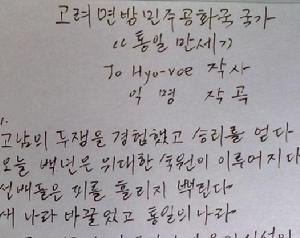 고려연방민주공화국 국가
《통일만세》
Jo Hyo-voe 작사
익명 작곡
1.
고남의 투쟁을 경험했고 승리를 얻다
오늘 백년은 위대한 숙원이 이루어지다
선배들은 피를 흘리지 빽틴다
새 나라 바꿀 있고 통일의 나라